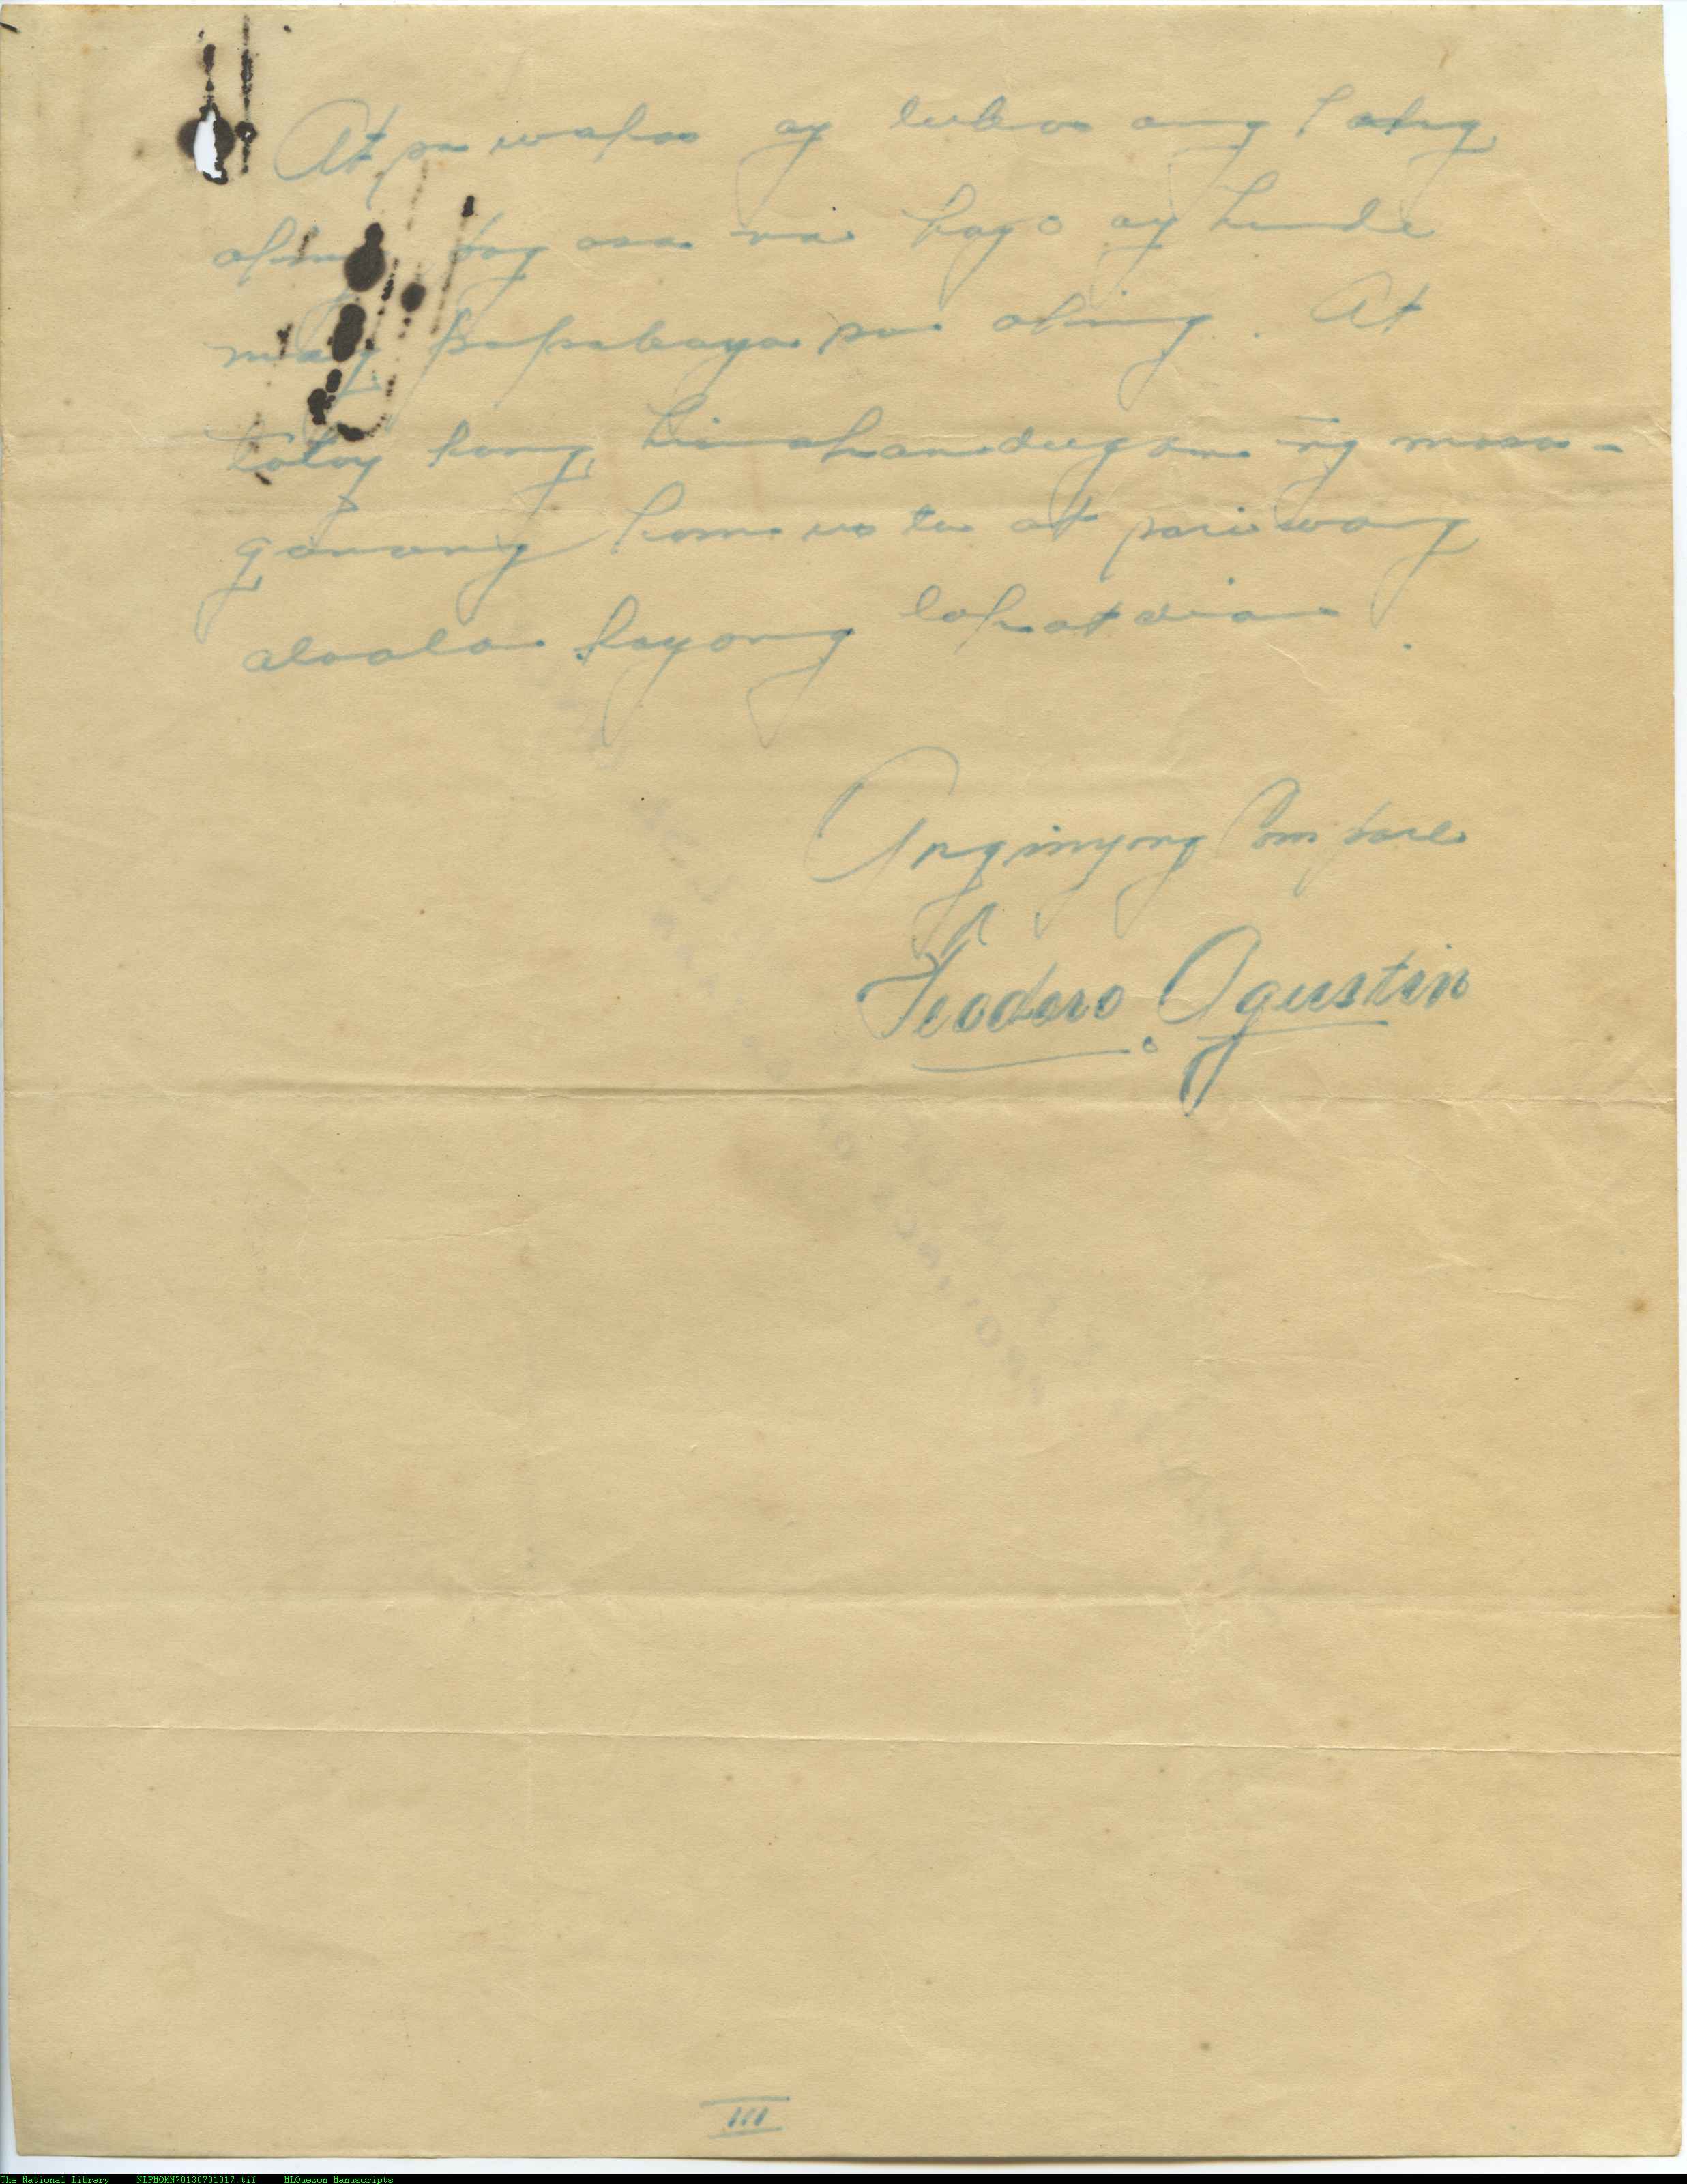 At sa wakas ay lubos ang
aking pag asa na kayo ay hinde
mag papabaya sa aking. At
tuloy kong hinahandugan ng masa-
ganang komusta at pariwang
alaala kayong lahat dian.
Ang inyong Compare
Teodoro Agustin
III
The National Library NLPMQMN70130701017.tif MLQuezon Manuscripts